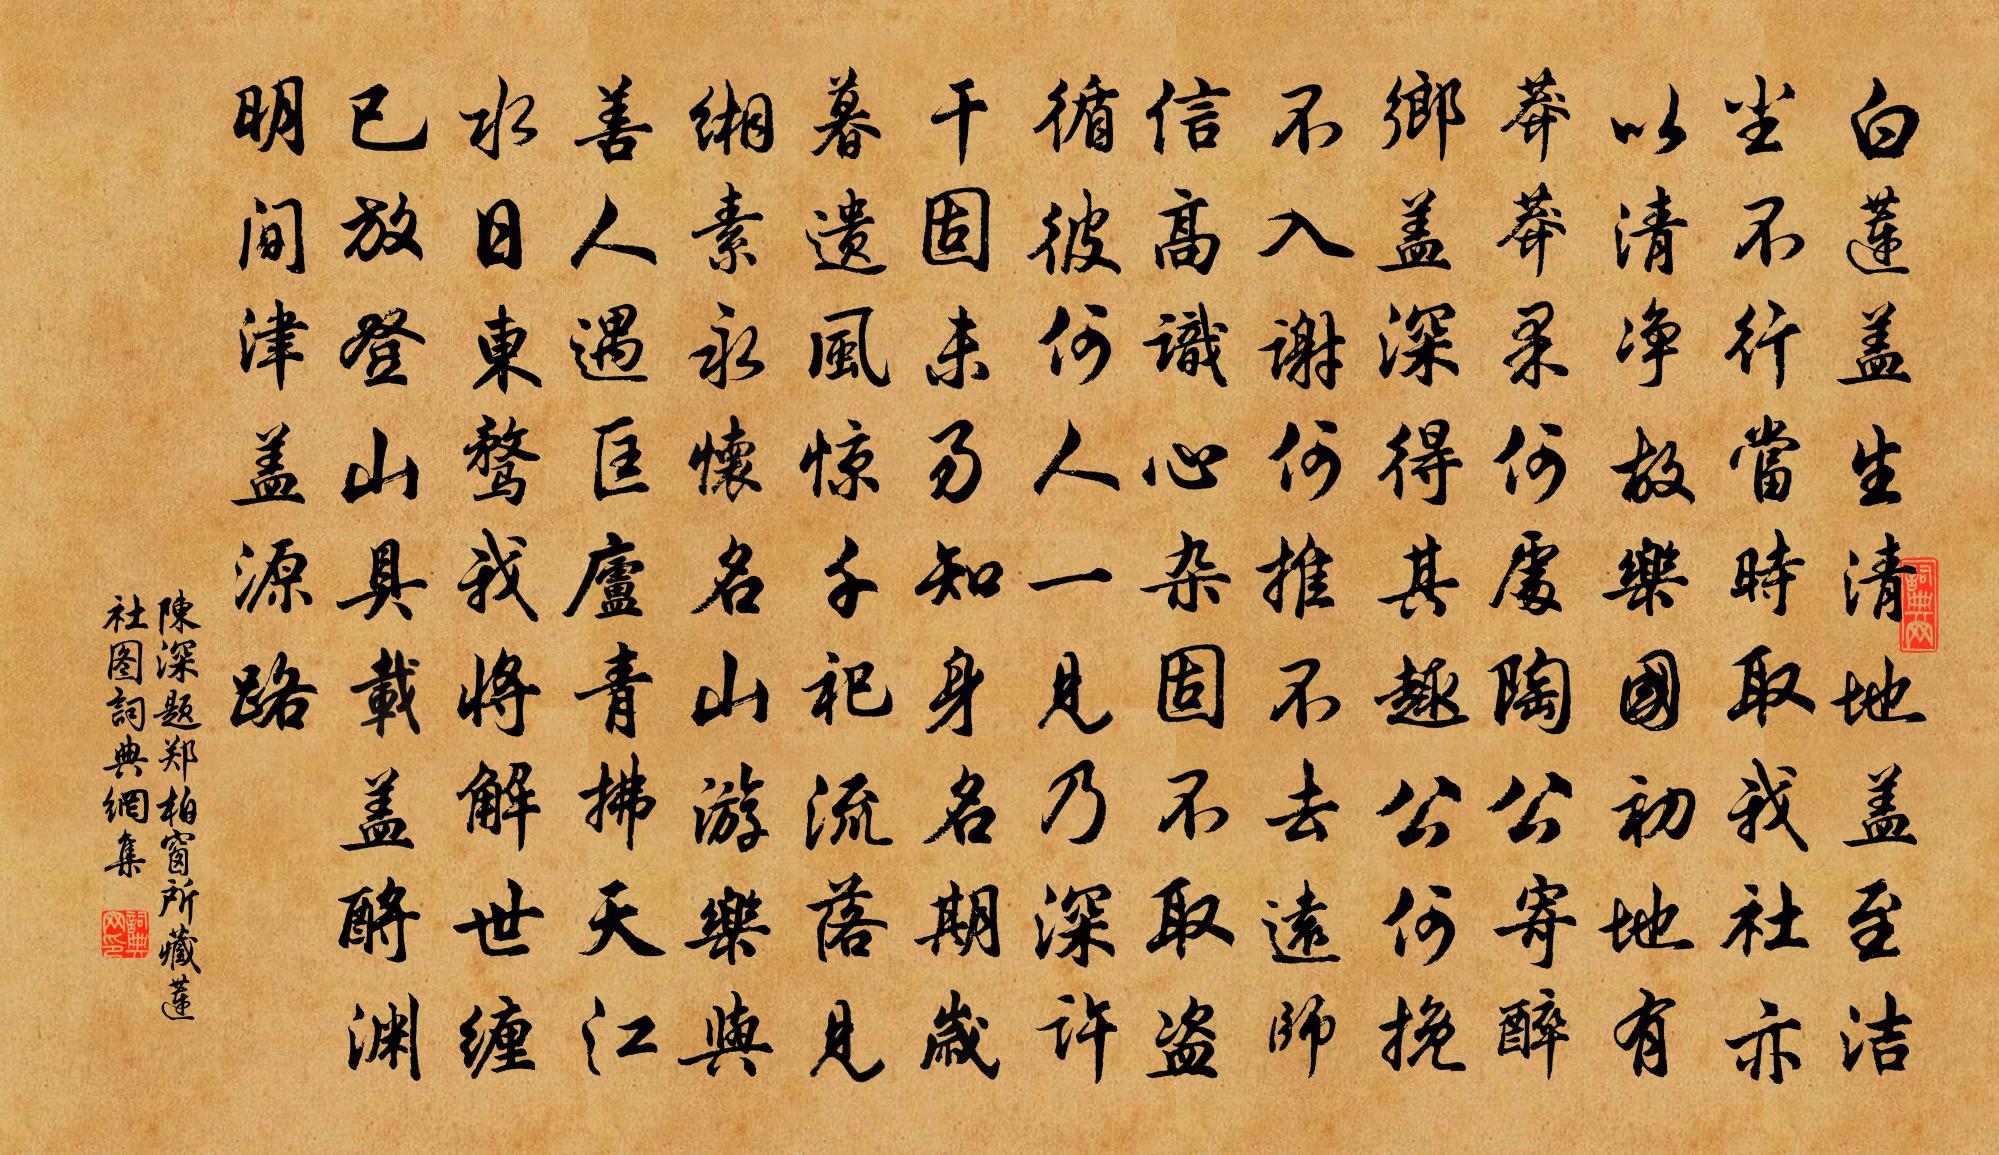 白蓮盖生清地盖至洁
坐不行當時取我社亦
以清净故樂國初地有
莽莽柔何處陶公寄醉
鄉盖深得其趣公何挽
不入謝何推不去遠師
信高識心杂固不取盗
循彼何人一見乃深许
干固未易知身名期歲
暮遗風惊千祀流落見
缃素永懷名山游樂與
善人遇匡廬青拂天江
水日東骛我将解世缠
已放登山具載盖酹渊
明间津盖源路
陳深题郑柏窗所藏蓮
社图詞典網集